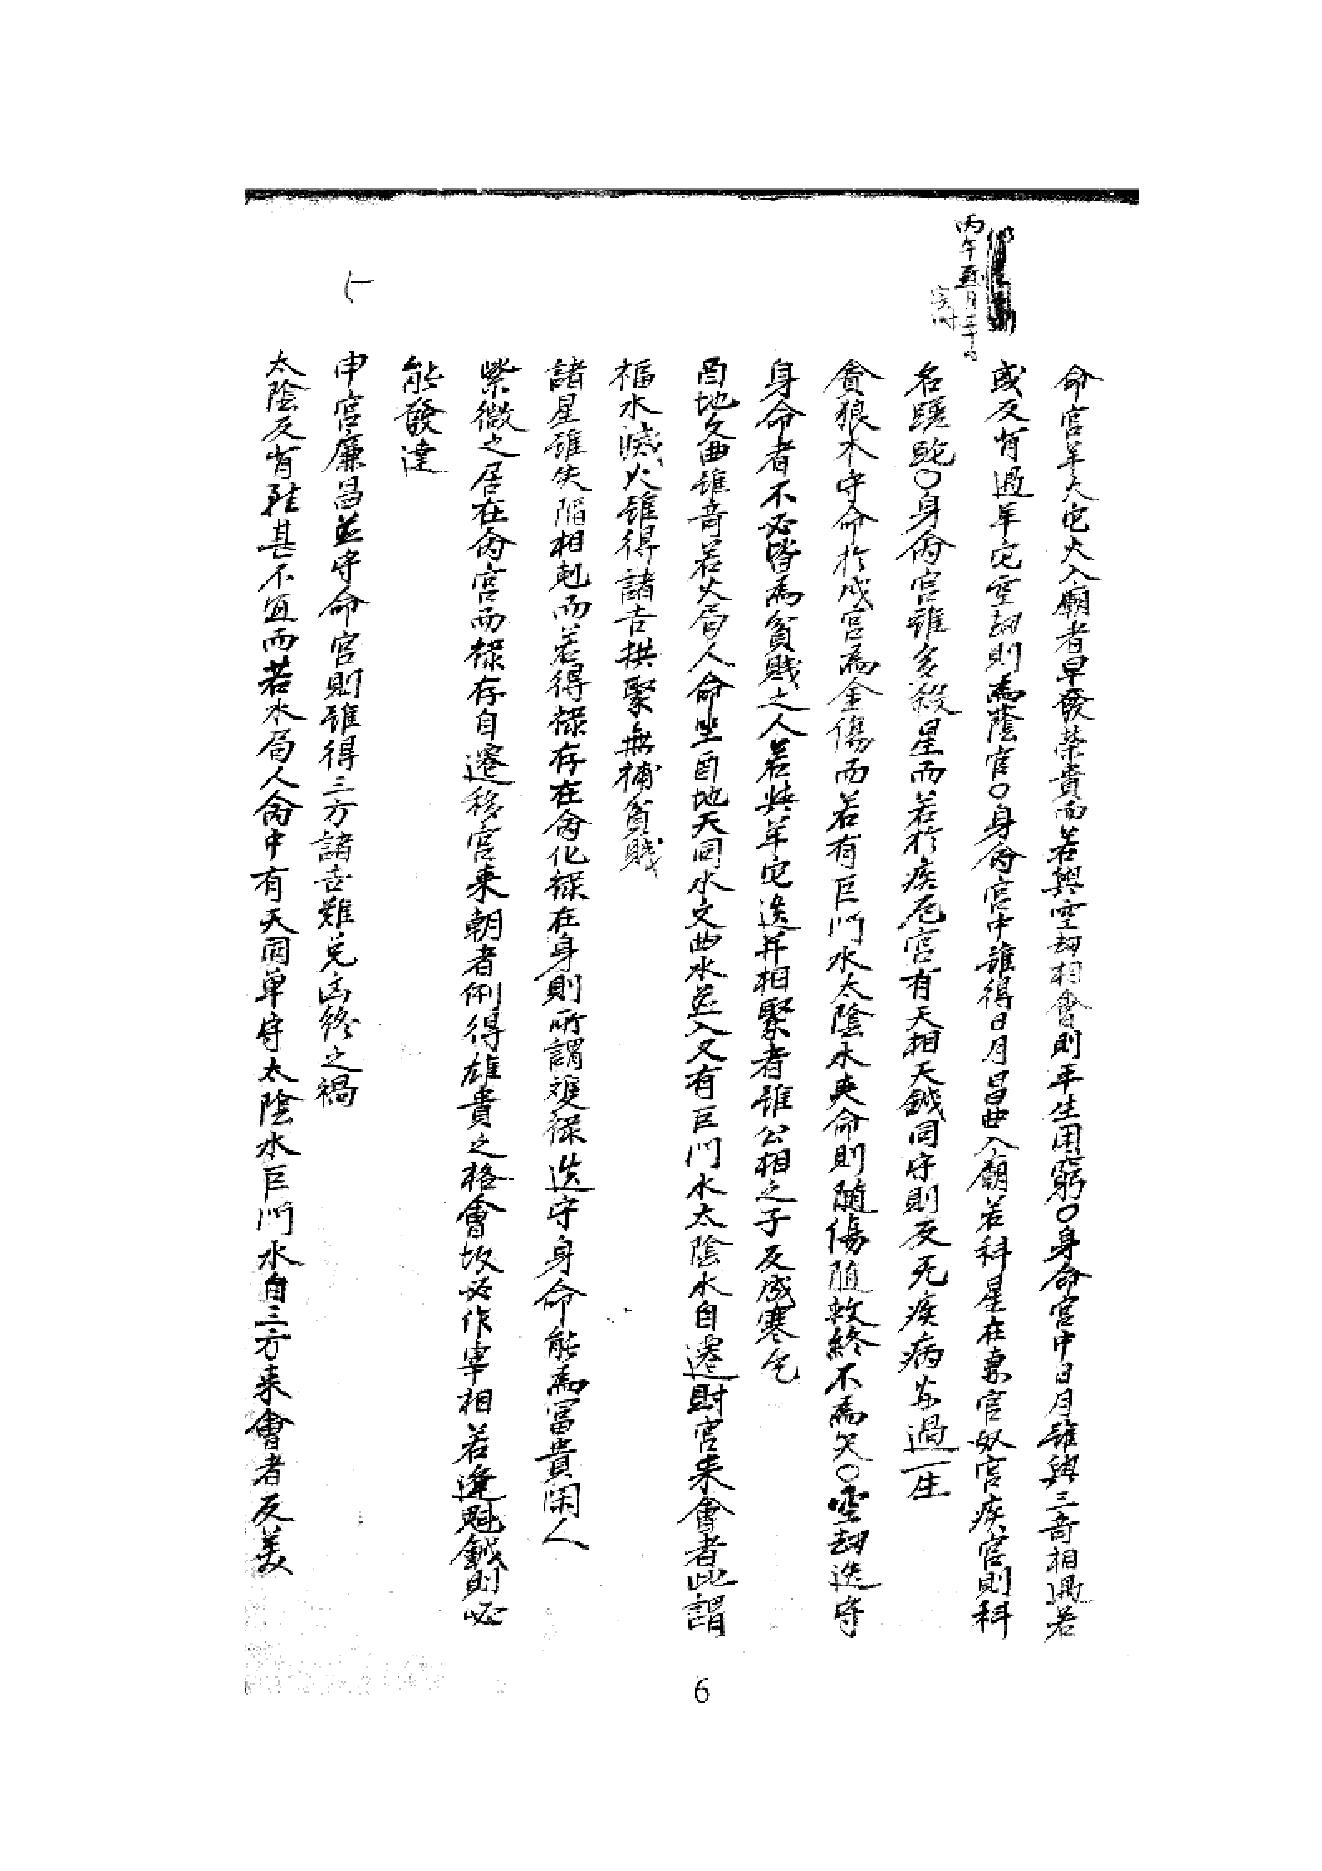 丙午五月三十日
寅時
命宮羊火宅火入廟者早發榮貴而若與空劫相會則平生困窮○身命宮中日月雖與三奇相遇若
或又有過羊宅空劫則為蔭官○身命宮中雖得日月昌曲入廟若科星在妻宮奴宮疾宮則科
名蹉跎○身命宮雖多殺星而若於疾厄宮有天相天鉞同守則反无疾病安過一生
貪狼木守命於戌宮為金傷而若有巨門水太陰水夾命則隨傷隨救終不為欠○空劫迭守
身命者不必皆為貧賤之人若與羊宅迭并相聚者雖公相之子反成寒乞
酉地文曲雖奇若火局人命坐酉地天同水文曲水並入又有巨門水太陰水自遷財宮來會者此謂
福水滅火雖得諸吉拱聚無補貧賤
諸星雖失陷相剋而若得祿存在命化祿在身則所謂雙祿迭守身命能為富貴閑人
紫微之居在命宮而祿存自遷移宮來朝者例得雄貴之格會坂必作宰相若逢魁鉞則必
能發達
申宮廉昌並守命宮則雖得三方諸吉難免凶終之禍
太陰反背甚不宜而若水局人命中有天同單守太陰水巨門水自三方來會者反美
6